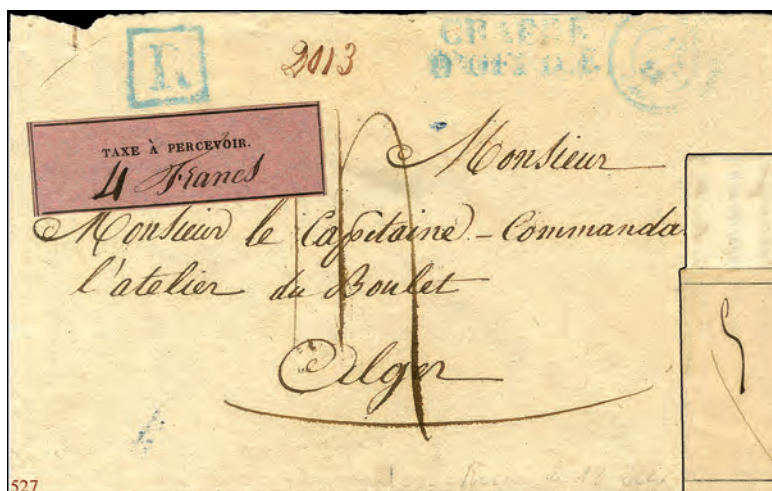 R
2013
CHARGÉ
D'OFFICE
TAXE À PERCEVOIR.
4 Francs
Monsieur
Monsieur le Capitaine - Commanda
l'atelier du Boulet
Alger
527